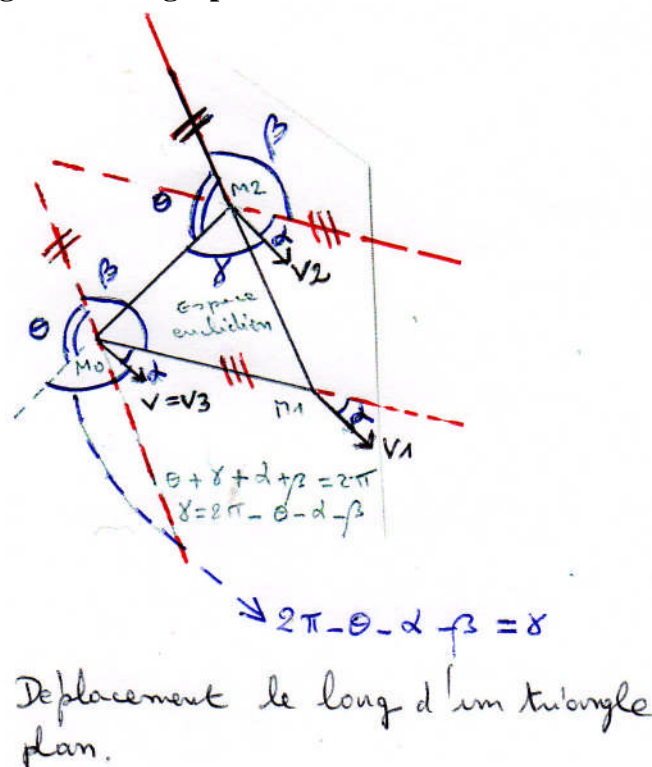 β
θ
M2
α
γ
V2
β
Espace
euclidien
θ
M0
α
V=V3
M1
α
V1
θ+γ+α+β=2π
γ=2π-θ-α-β
2π-θ-α-β=γ
Deplacement le long d'un triangle
plan.